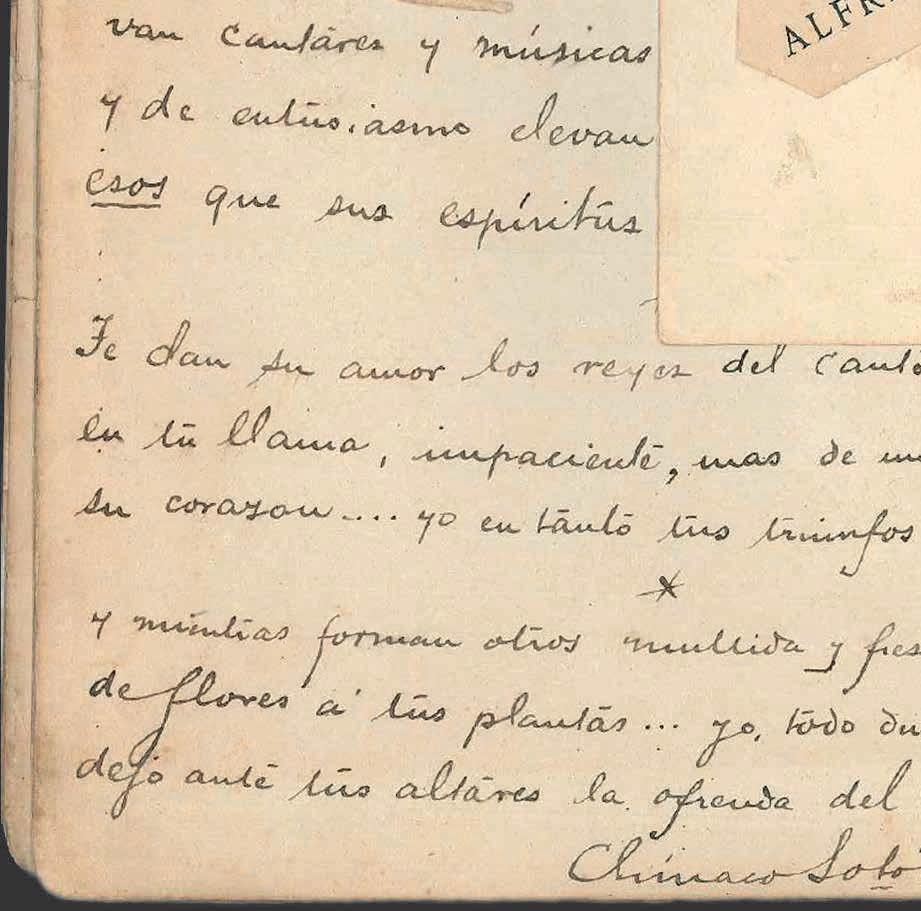 van cantares y músicas
ALFR
y de entusiasmo elevan
esos que sus espíritus
Te dan su amor los reyes del canto
en tu llama, impaciente, mas de un
su corazon.... yo en tanto tus triunfos
*
y mientras forman otros mullida y fres
de flores á tus plantas... yo, todo du
dejo ante tus altares la ofrenda del
Clímaco Soto